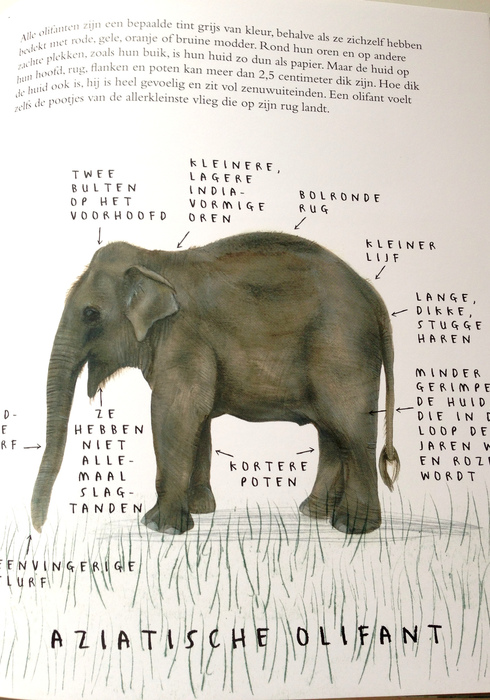 Alle olifanten zijn een bepaalde tint grijs van kleur, behalve als ze zichzelf hebben
bedekt met rode, gele, oranje of bruine modder. Rond hun oren en op andere
zachte plekken, zoals hun buik, is hun huid zo dun als papier. Maar de huid op
hun hoofd, rug, flanken en poten kan meer dan 2,5 centimeter dik zijn. Hoe dik
de huid ook is, hij is heel gevoelig en zit vol zenuwuiteinden. Een olifant voelt
zelfs de pootjes van de allerkleinste vlieg die op zijn rug landt.
TWEE
BULTEN
OP HET
VOORHOOFD
KLEINERE,
LAGERE
INDIA-
VORMIGE
OREN
BOLRONDE
RUG
KLEINER
LIJF
LANGE,
DIKKE,
STUGGE
HAREN
MINDER
GERIMPE
DE HUID
DIE IN D
LOOP DE
JAREN W
EN ROZ
WORDT
D-
E
RF
ZE
HEBBEN
NIET
ALLE-
MAAL
SLAG-
TANDEN
KORTERE
POTEN
EENVINGERIGE
LURF
AZIATISCHE OLIFANT